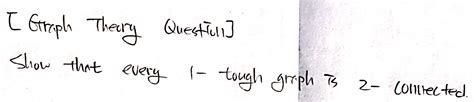 [Graph Theory Question]
Show that every 1- tough graph is 2- connected.